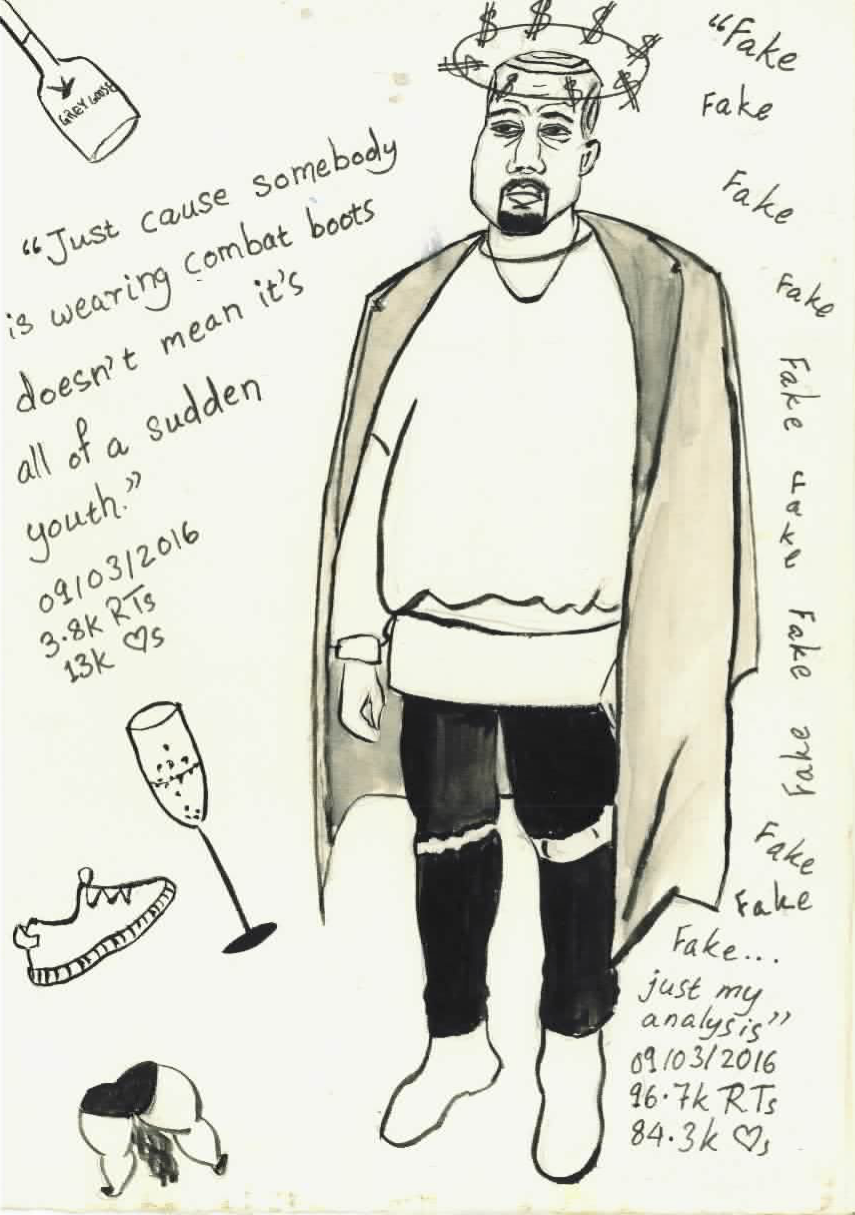 GREY GOOSE
“Just cause somebody
is wearing combat boots
doesn't mean it's
all of a sudden
youth.”
09/03/2016
3.8K RTs
13K ♡s
$ $ $ $ $ $ $ $
“Fake
Fake
Fake
Fake
Fake
Fake
Fake
Fake
Fake
Fake
Fake...
just my
analysis”
09/03/2016
96.7k RTs
84.3k ♡s